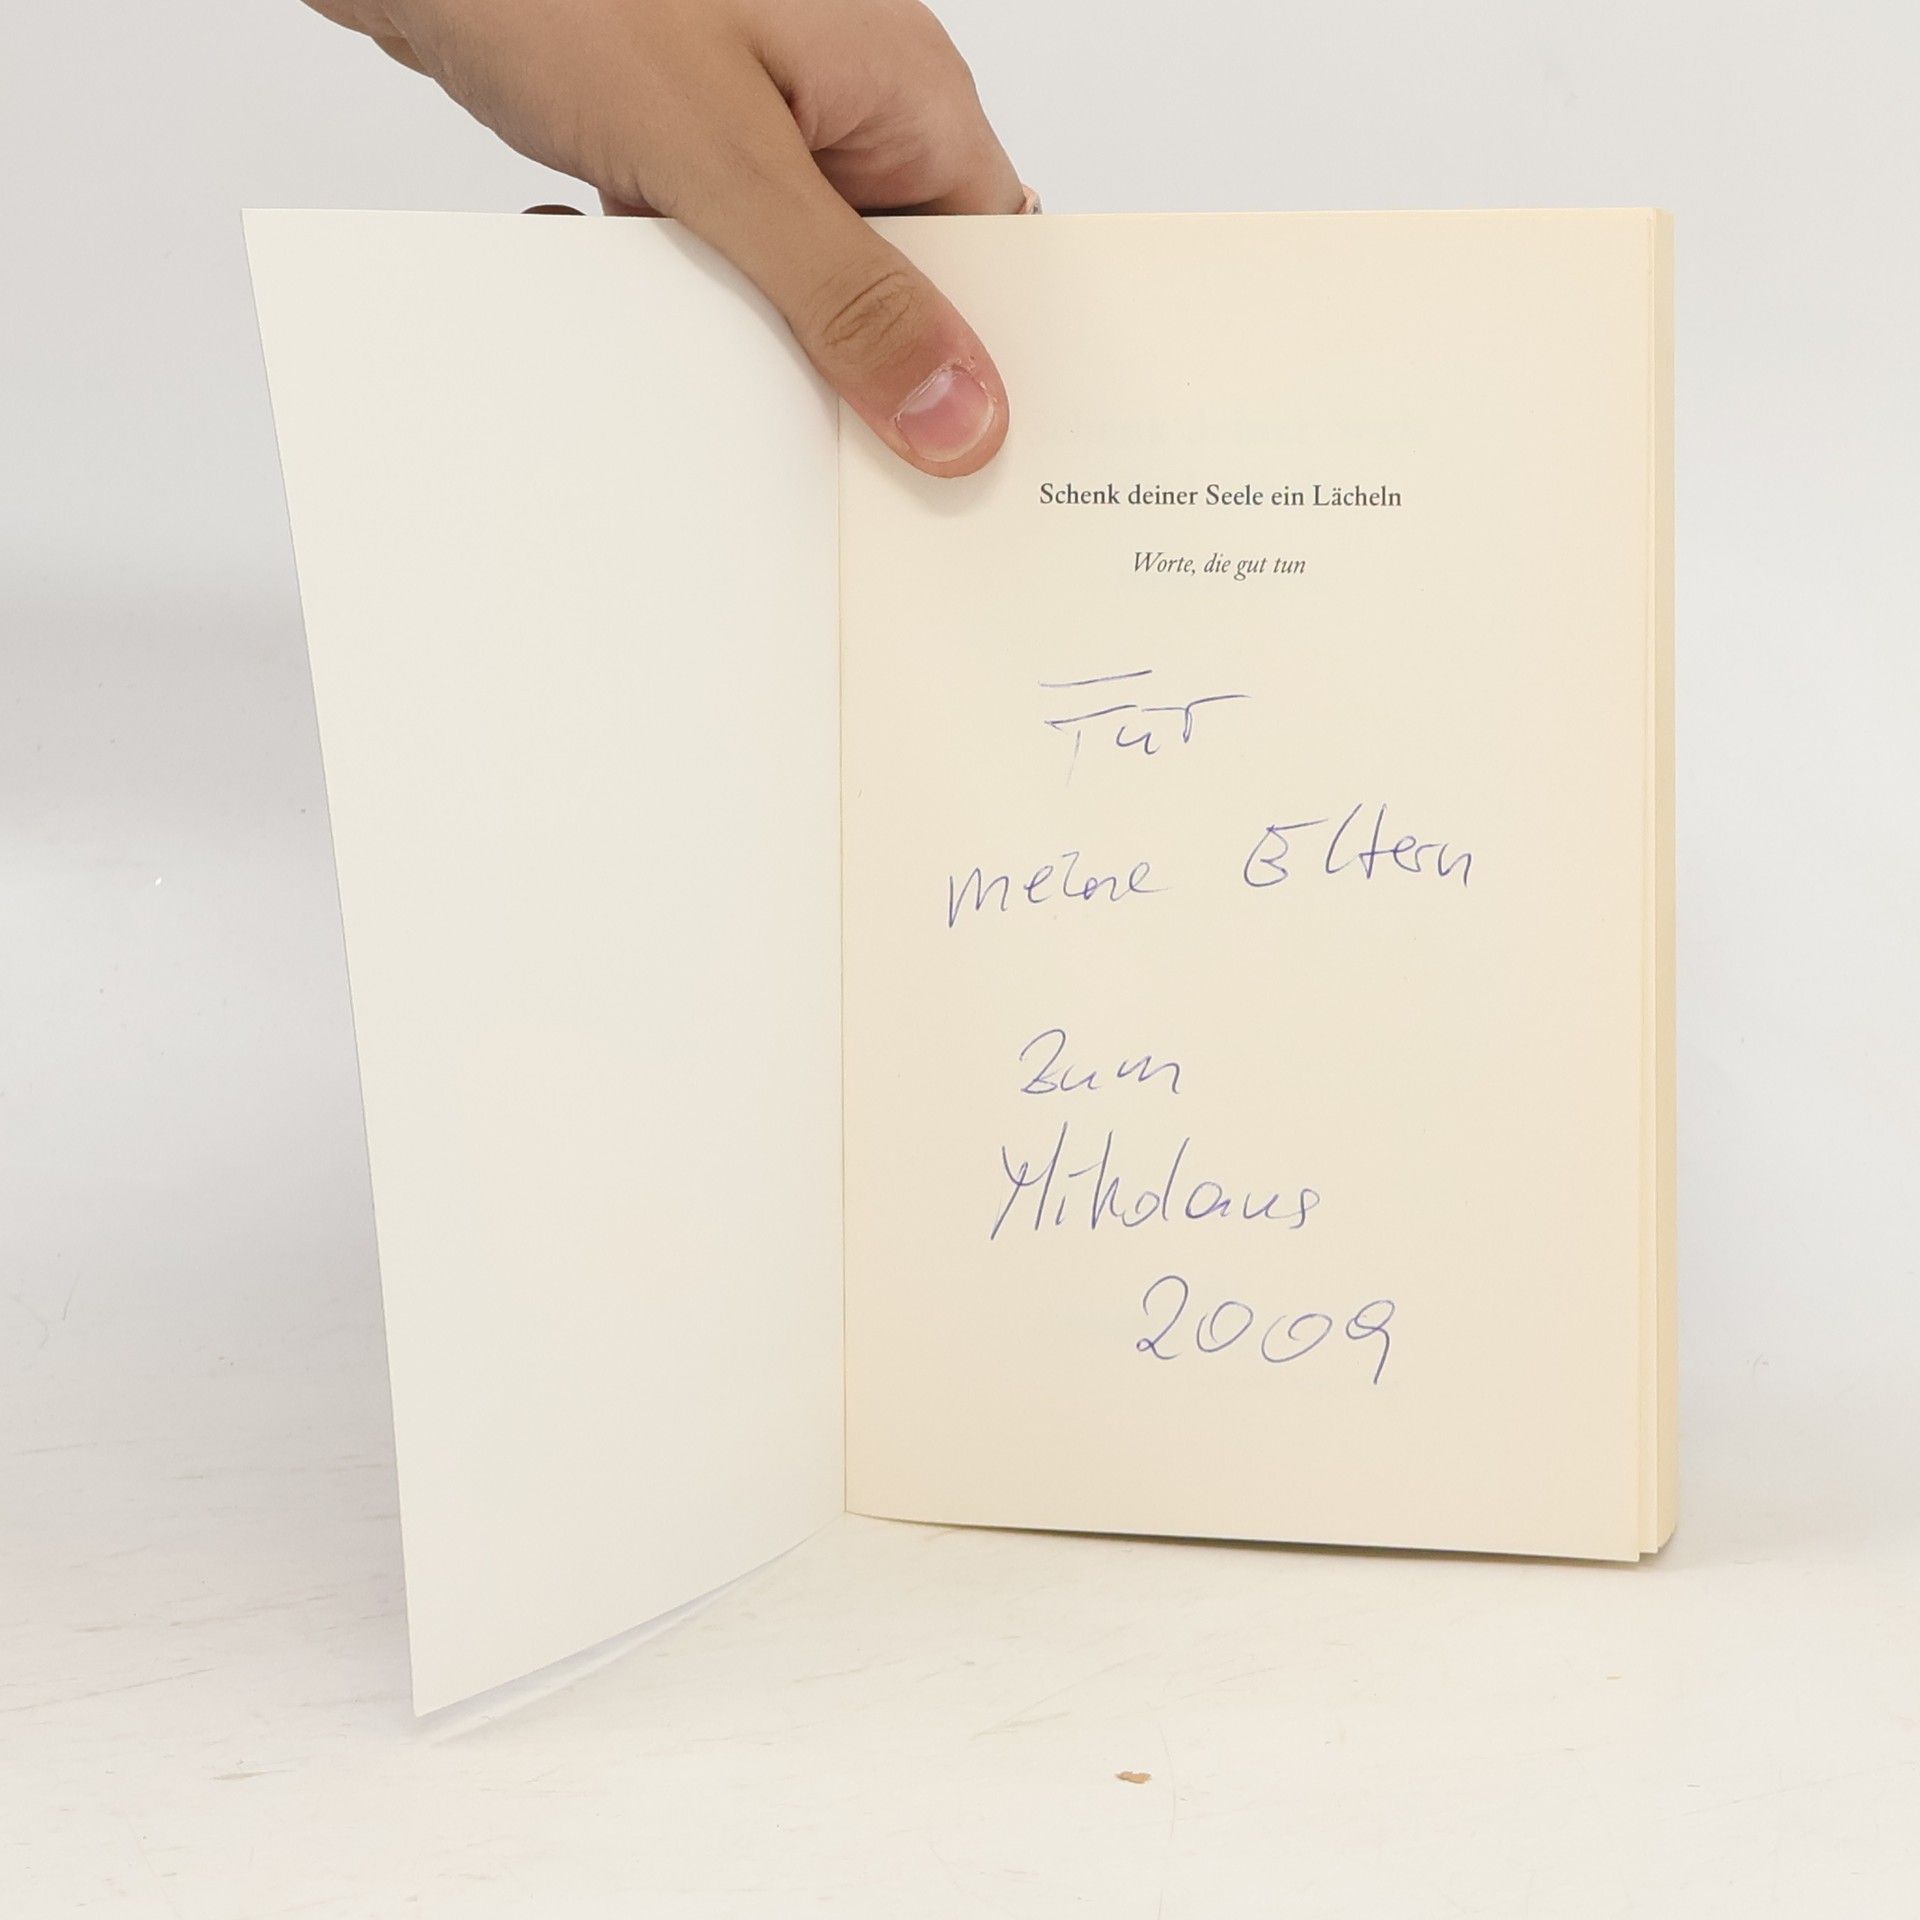 Schenk deiner Seele ein Lächeln
Worte, die gut tun
Für
meine Eltern
zum
Nikolaus
2009